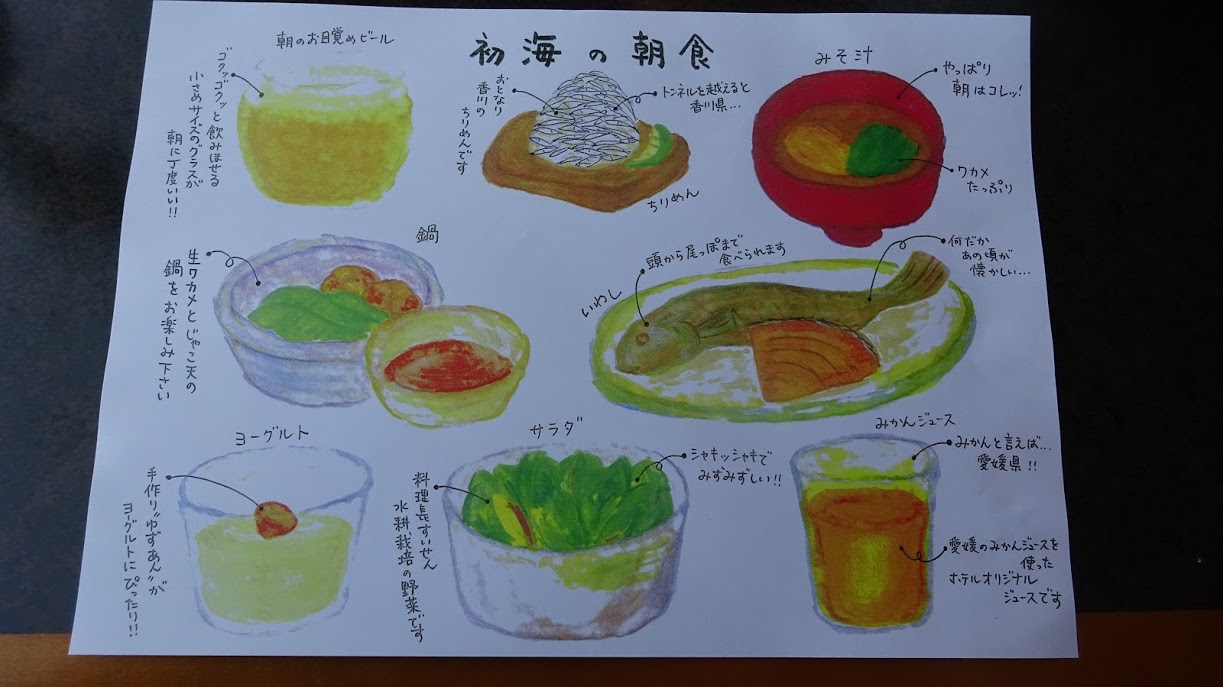 初海の朝食
朝のお目覚めビール
ゴクッゴクッと飲みほせる
小さめサイズのグラスが
朝に丁度いい!!
おとなり
香川の
ちりめんです
トンネルを越えると
香川県…
ちりめん
みそ汁
やっぱり
朝はコレッ!
ワカメ
たっぷり
鍋
生ワカメとじゃこ天の
鍋をお楽しみ下さい
いわし
頭から尾っぽまで
食べられます
何だか
あの頃が
懐かしい…
ヨーグルト
手作り"ゆずあん"が
ヨーグルトにぴったり!!
サラダ
料理長すいせん
水耕栽培の野菜です
シャキッシャキで
みずみずしい!!
みかんジュース
みかんと言えば…
愛媛県!!
愛媛のみかんジュースを
使った
ホテルオリジナル
ジュースです